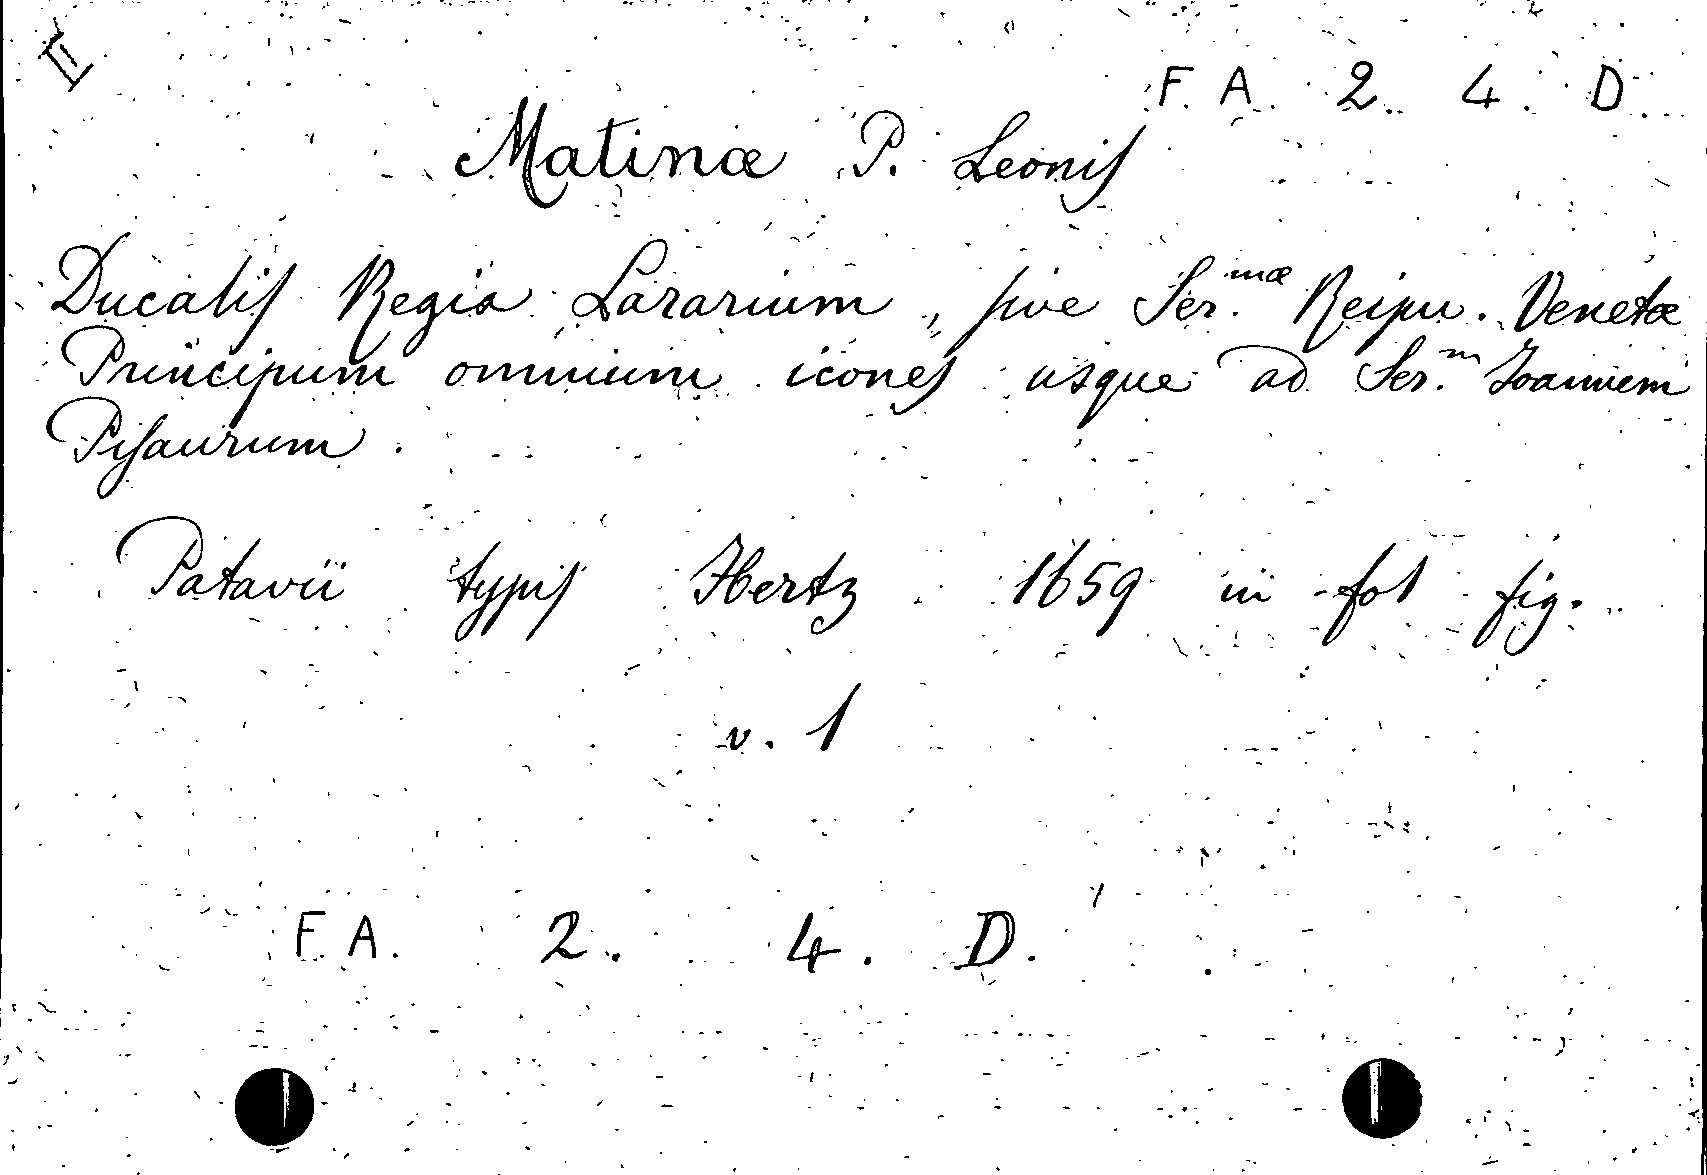 II
F. A. 2. 4. D.
Matinæ P. Leonis
Ducalis Regia Lararium, sive Ser.mæ Reipu. Venetæ
Principum omnium icones usque ad Ser.m Joannem
Pisaurum.
Patavii typis Hertz 1659 in fol fig.
v. 1
F. A. 2. 4. D.